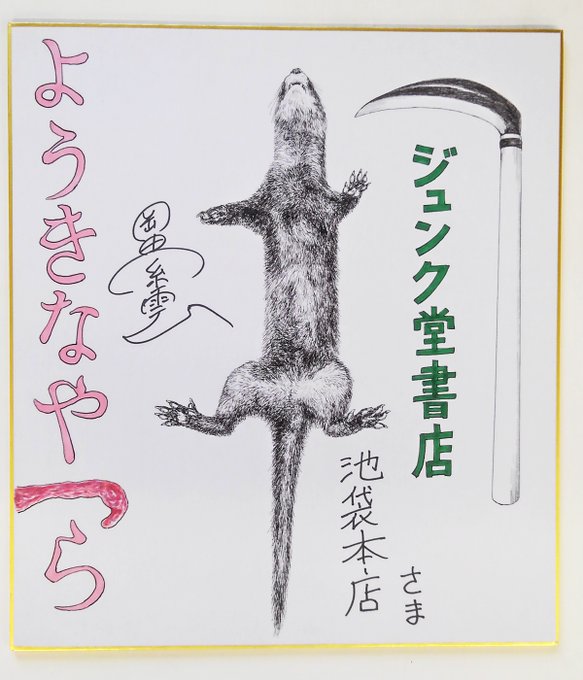 ジュンク堂書店
池袋本店
さま
岡田索雲
ようきなやつら